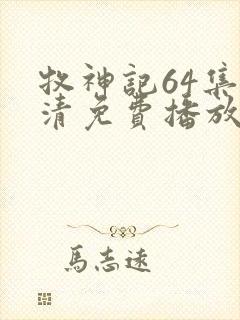 牧神記64集
清免費播放
馬志遠